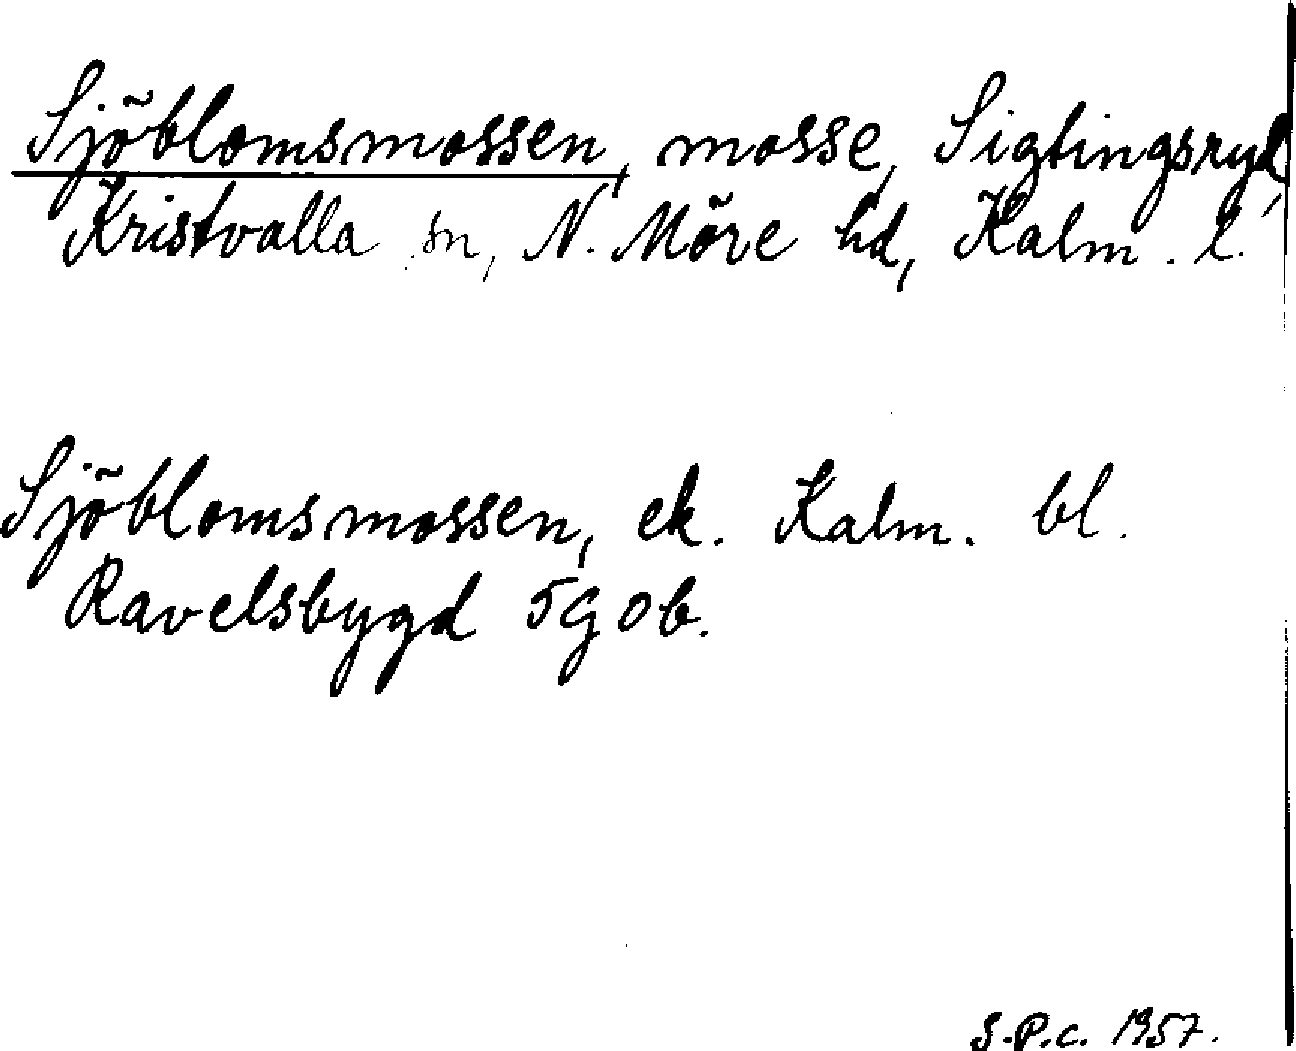 Sjöblomsmossen, mosse, Sigtingsryd,
Kristvalla sn, N. Möre hd, Kalm. l.
Sjöblomsmossen, ek. Kalm. bl.
Ravelsbygd 5g ob.
S.P.c. 1957.